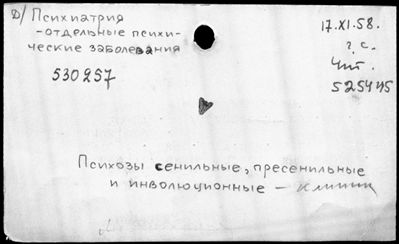 Д/ Психиатрия
-отдельные психи-
ческие заболевания
530257
17.XI.58.
г. с.
Чит.
525445
Психозы сенильные, пресенильные
и инволюционные –